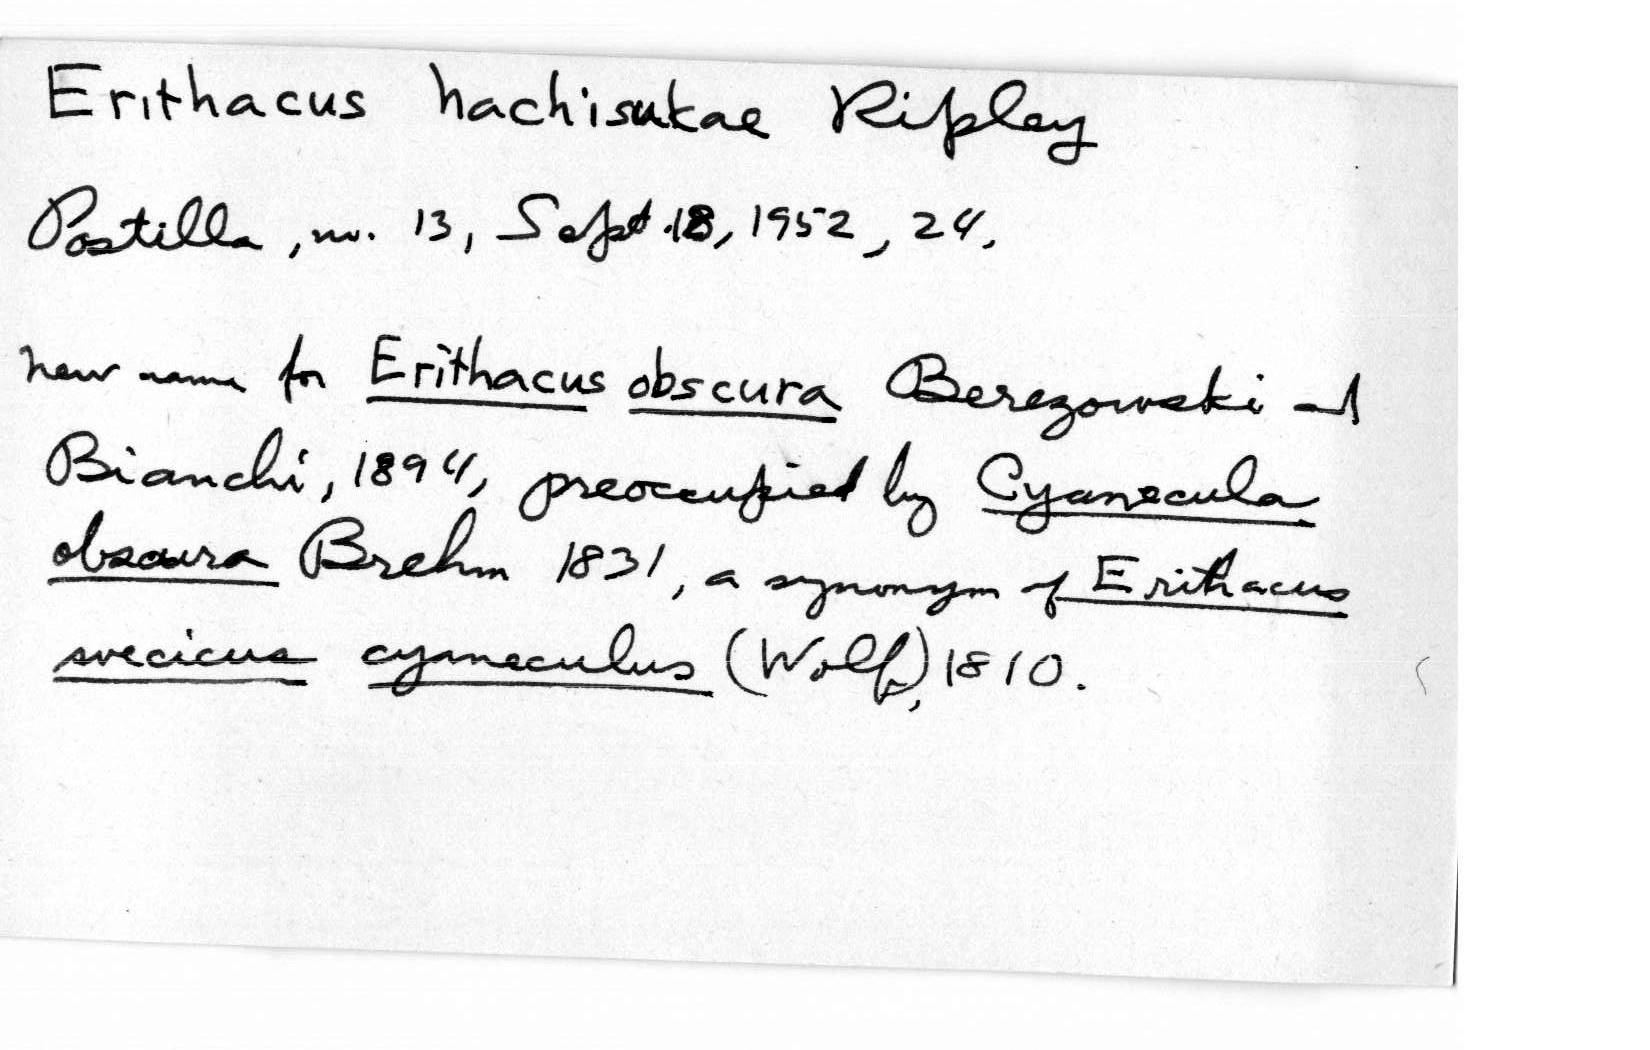 Erithacus hachisukae Ripley
Postilla, no. 13, Sept. 18, 1952, 24.
new name for Erithacus obscura Berezowski and
Bianchi, 1894, preoccupied by Cyanecula
obscura Brehm 1831, a synonym of Erithacus
svecicus cyaneculus (Wolf), 1810.